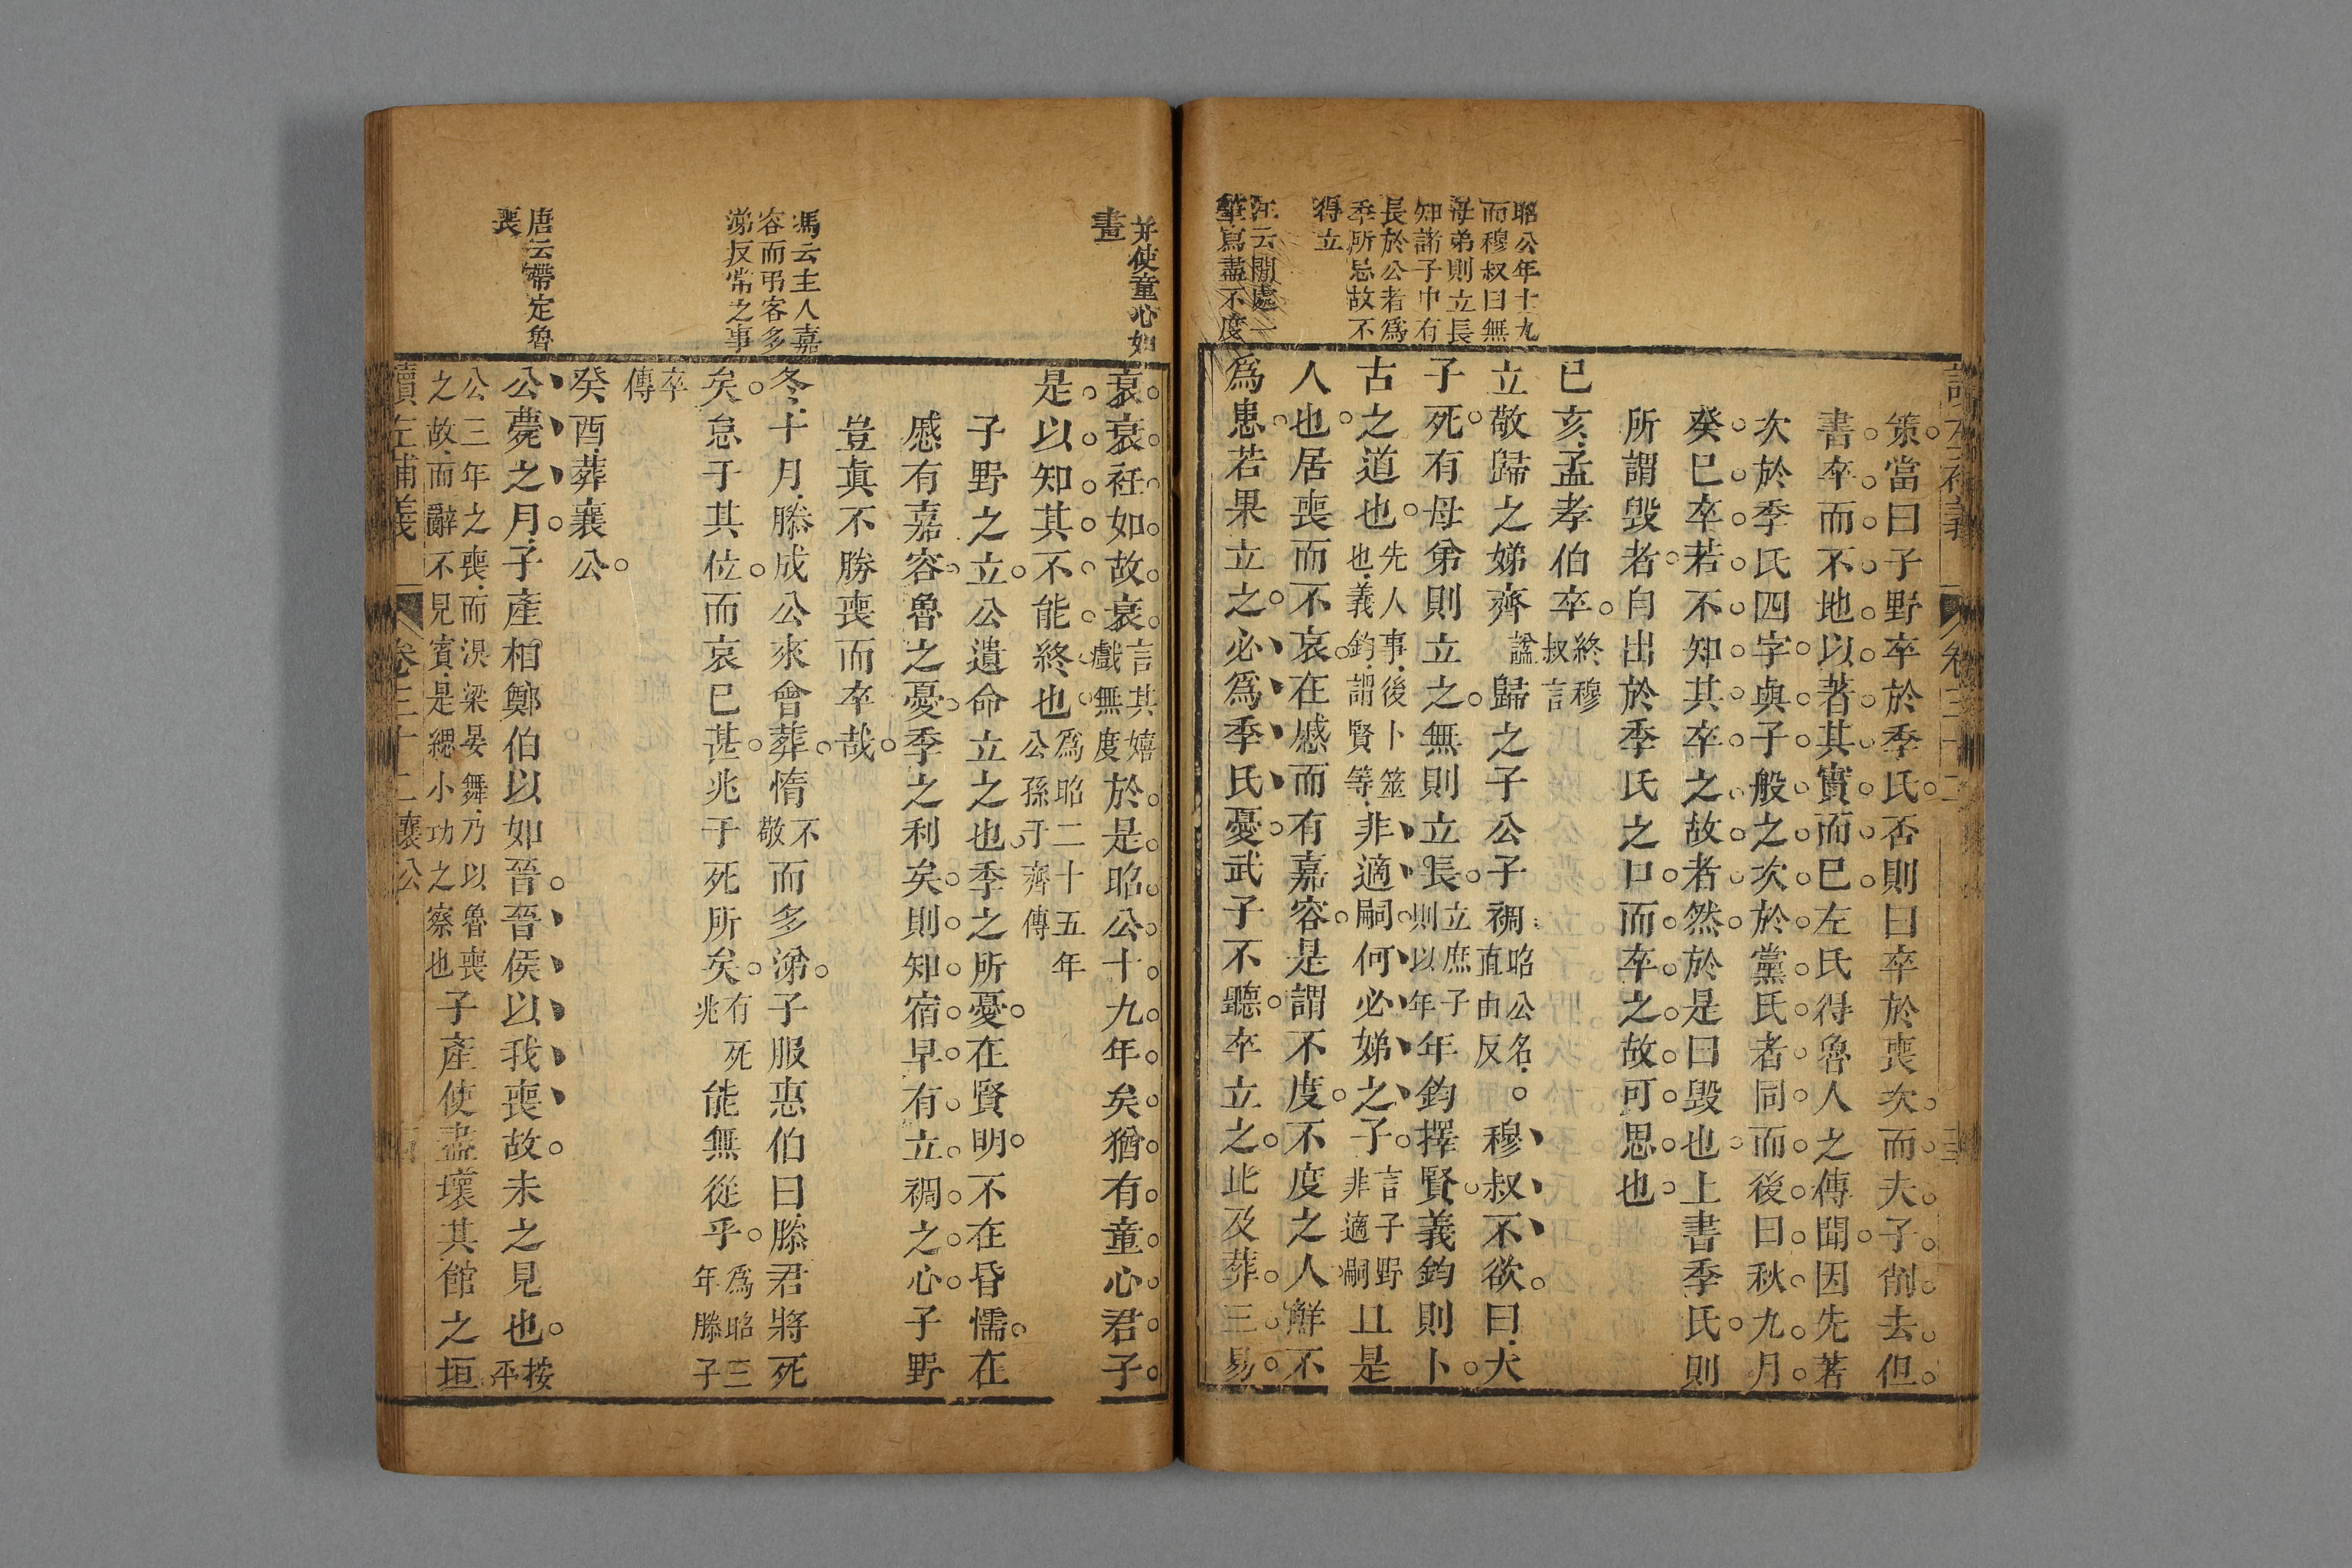 昭公年十九
而穆叔曰無
母弟則立長
知諸子中有
長於公者爲
季所忌故不
得立
汪云閒處一
筆寫盡不度
策當曰子野卒於季氏否則曰卒於喪次而夫子削去但
書卒而不地以著其實而巳左氏得魯人之傳聞因先著
次於季氏四字與子般之次於黨氏者同而後曰秋九月
癸巳卒若不知其卒之故者然於是曰毁也上書季氏則
所謂毁者自出於季氏之口而卒之故可思也
已亥孟孝伯卒終穆叔言
立敬歸之娣齊諡歸之子公子裯昭公名直由反穆叔不欲曰大
子死有母弟則立之無則立長立庶子則以年年鈞擇賢義鈞則卜
古之道也先人事後卜筮也義鈞謂賢等非適嗣何必娣之子言子野非適嗣且是
人也居喪而不哀在慼而有嘉容是謂不度不度之人鮮不
爲患若果立之必爲季氏憂武子不聽卒立之此及葬三易
并使童心如
畫
馮云主人嘉
容而弔客多
涕反常之事
唐云帶定魯
喪
衰衰衽如故衰言其嬉戲無度於是昭公十九年矣猶有童心君子
是以知其不能終也爲昭二十五年公孫于齊傳
子野之立公遺命立之也季之所憂在賢明不在昏懦在
慼有嘉容魯之憂季之利矣則知宿早有立裯之心子野
豈眞不勝喪而卒哉
冬十月滕成公來會葬惰不敬而多涕子服惠伯曰滕君將死
矣怠于其位而哀已甚兆于死所矣有死兆能無從乎爲昭三年滕子
卒傳
癸酉葬襄公
公薨之月子產相鄭伯以如晉晉侯以我喪故未之見也按平
公三年之喪而湨梁晏舞乃以魯喪之故而辭不見賓是緦小功之察也子產使盡壞其館之垣
讀左補義 卷三十二襄公